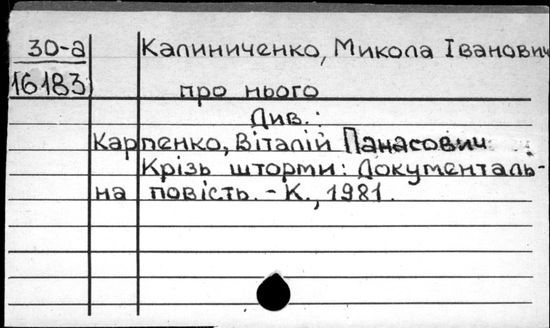 30-а Калиниченко, Микола Іванович
16183 про нього
Див.:
Карпенко, Віталій Панасович
Крізь шторми: Документаль-
на повість. - К., 1981.